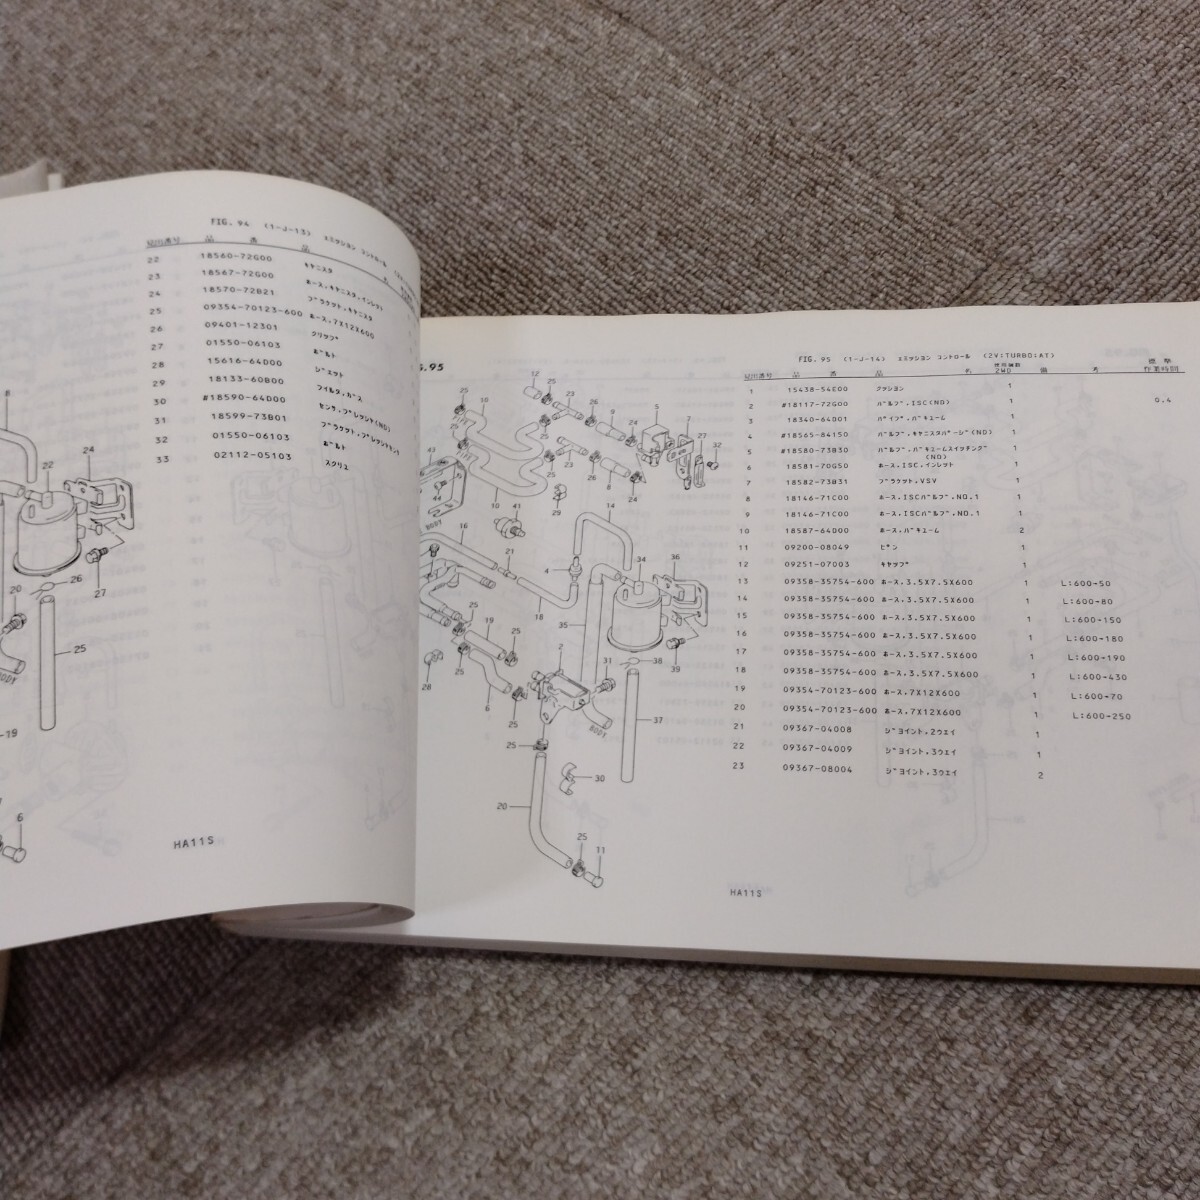 FIG. 94 (1-J-13) エミッション コントロール
見出番号 品 番 品
22 18560-72G00 キャニスタ
23 18567-72G00 ホース,キャニスタ,インレット
24 18570-72B21 ブラケット,キャニスタ
25 09354-70123-600 ホース,7X12X600
26 09401-12301 クリップ
27 01550-06103 ボルト
28 15616-64D00 ジェット
29 18133-60B00 フィルタ,ガス
30 #18590-64D00 センサ,プレッシャ(ND)
31 18599-73B01 ブラケット,プレッシャセンサ
32 01550-06103 ボルト
33 02112-05103 スクリュ
8
22
24
20
26
27
25
BODY
-19
6
HA11S
G.95
FIG. 95 (1-J-14) エミッション コントロール (2V:TURBO:AT)
見出番号 品 番 品 名 使用個数 2WD 備 考 標準作業時間
1 15438-54E00 クッション 1
2 #18117-72G00 バルブ,ISC(ND) 1 0.4
3 18340-64D01 パイプ,バキューム 1
4 #18565-84150 バルブ,キャニスタパージ(ND) 1
5 #18580-73B30 バルブ,バキュームスイッチング(ND) 1
6 18581-70G50 ホース,ISC,インレット 1
7 18582-73B31 ブラケット,VSV 1
8 18146-71C00 ホース,ISCバルブ,NO.1 1
9 18146-71C00 ホース,ISCバルブ,NO.1 1
10 18587-64D00 ホース,バキューム 2
11 09200-08049 ピン 1
12 09251-07003 キャップ 1
13 09358-35754-600 ホース,3.5X7.5X600 1 L:600→50
14 09358-35754-600 ホース,3.5X7.5X600 1 L:600→80
15 09358-35754-600 ホース,3.5X7.5X600 1 L:600→150
16 09358-35754-600 ホース,3.5X7.5X600 1 L:600→180
17 09358-35754-600 ホース,3.5X7.5X600 1 L:600→190
18 09358-35754-600 ホース,3.5X7.5X600 1 L:600→430
19 09354-70123-600 ホース,7X12X600 1 L:600→70
20 09354-70123-600 ホース,7X12X600 1 L:600→250
21 09367-04008 ジョイント,2ウェイ 1
22 09367-04009 ジョイント,3ウェイ 1
23 09367-08004 ジョイント,3ウェイ 2
12
25
26
5
7
10
23
9
24
27
32
43
25
23
26
8
24
BODY
10
41
29
14
16
21
4
34
36
18
35
25
19
25
28
25
6
25
2
31
38
39
BODY
37
25
30
20
25
11
HA11S